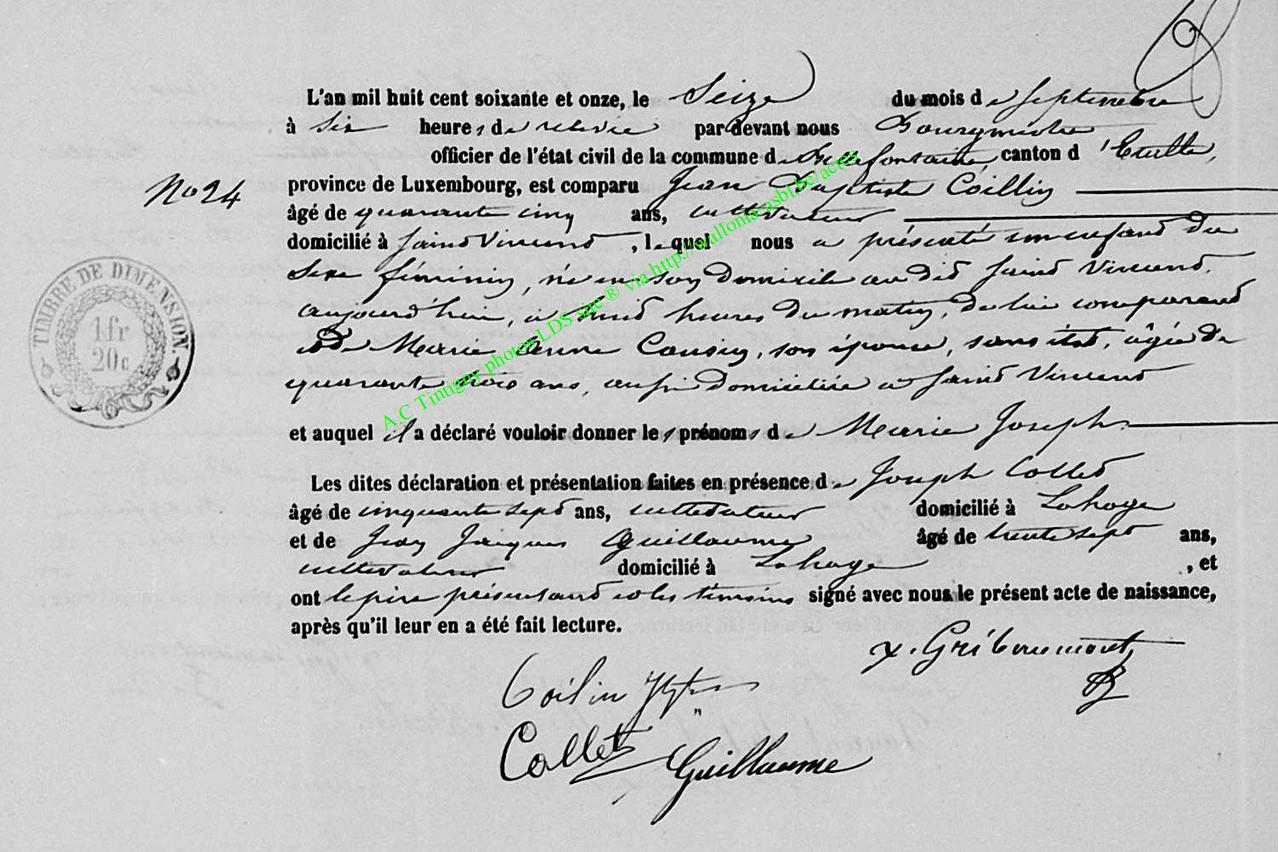 L'an mil huit cent soixante et onze, le Seize du mois de Septembre
à Six heures de relevée par devant nous Bourgmestre
officier de l'état civil de la commune de Bellefontaine canton d'Etalle,
No 24
province de Luxembourg, est comparu Jean Baptiste Coillin
âgé de quarante cinq ans, cultivateur
domicilié à Saint Vincent, lequel nous a présenté un enfant du
Sexe féminin, né en son domicile au dit Saint Vincent,
aujourd'hui, à heures du matin, de lui comparant
et de Marie Anne Cousin, son épouse, sans état, âgée de
quarante trois ans, aussi domiciliée à Saint Vincent
et auquel il a déclaré vouloir donner les prénoms de Marie Joseph
Les dites déclaration et présentation faites en présence de Joseph Collet
âgé de cinquante sept ans, cultivateur domicilié à Lahage
et de Jean Jacques Guillaume âgé de trente sept ans,
cultivateur domicilié à Lahage, et
ont le père présentant et les témoins signé avec nous le présent acte de naissance,
après qu'il leur en a été fait lecture.
x. Gribaumont
Coilin
Collet Guillaume
TIMBRE DE DIMENSION
1 fr
20 c
A.C Tintigny photos LDS site ® via http://wallonia.asbl.be/actes